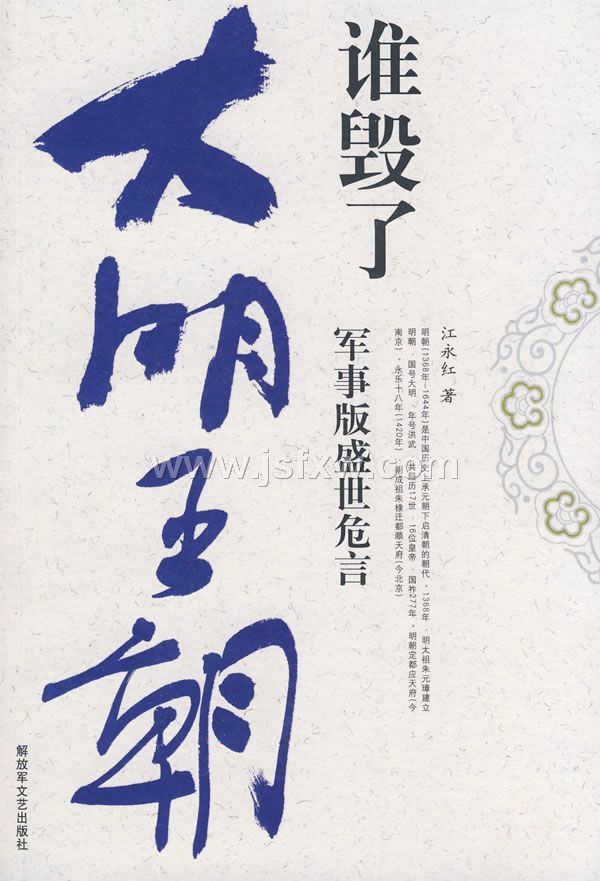 谁毁了
大明王朝
军事版盛世危言
江永红 著
明朝(1368年—1644年)是中国历史上承元朝下启清朝的朝代。1368年,明太祖朱元璋建立
明朝,国号大明,年号洪武,共经历17世,16位皇帝,国祚277年。明朝定都应天府(今
南京),永乐十八年(1420年),明成祖朱棣迁都顺天府(今北京)
解放军文艺出版社
www.jsfxw.com